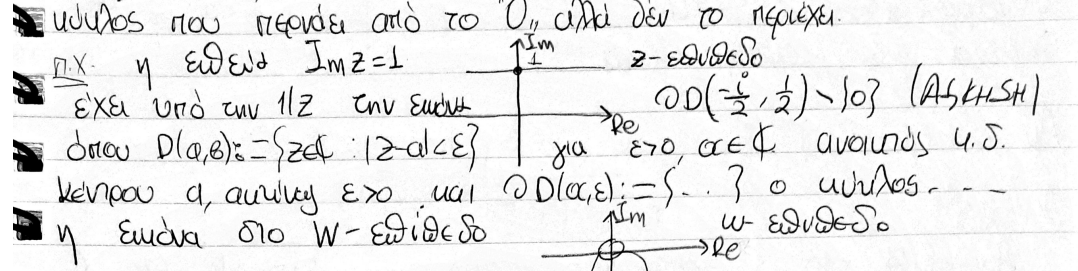 κύκλος που περνάει από το "0", αλλά δέν το περιέχει.
π.χ. η ευθεία Im z = 1
Im
1
z-επίπεδο
έχει υπό την 1/z την εικόνα
∂D(-i/2, 1/2) \ {0} (ASKHSH)
Re
όπου D(α,ε) := {z∈ℂ : |z-α|<ε} για ε>0, α∈ℂ ανοικτός κ.δ.
κέντρου α, ακτίνας ε>0 και ∂D(α,ε) := {...} ο κύκλος...
η εικόνα στο w-επίπεδο
Im
w-επίπεδο
Re